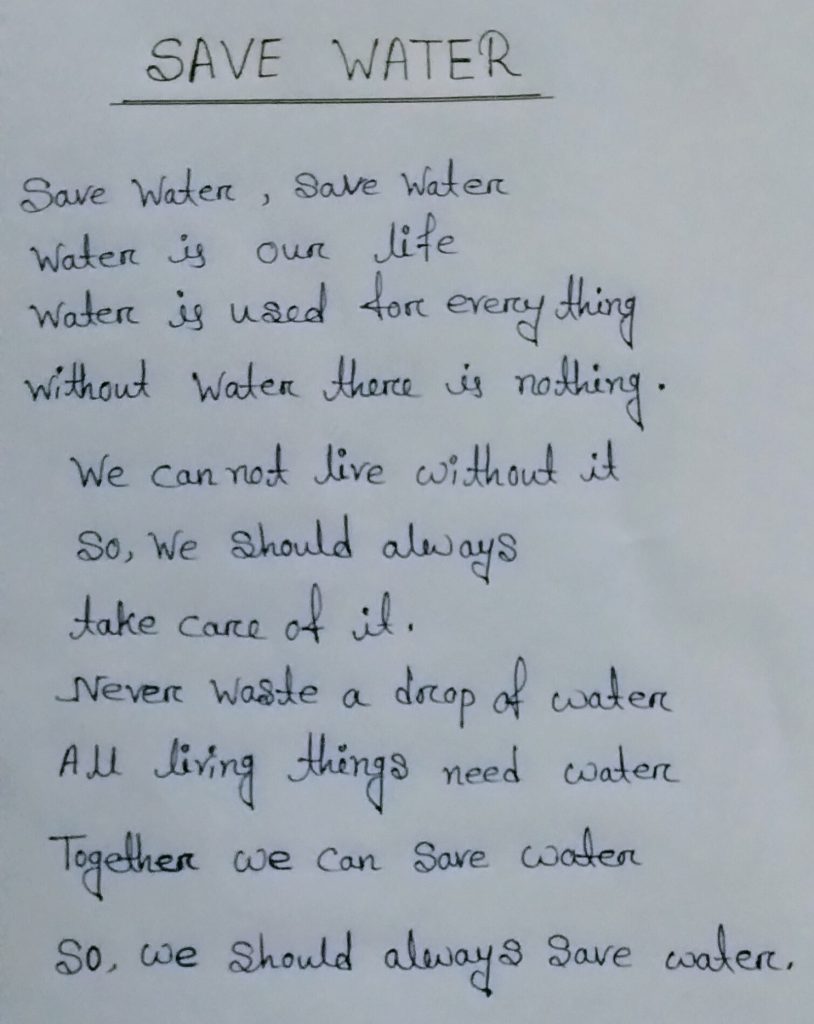 SAVE WATER
Save Water, Save Water
Water is our life
Water is used for every thing
Without Water there is nothing.
We can not live without it
So, We Should always
take care of it.
Never Waste a drop of water
All living things need water
Together we can Save water
So, we Should always Save water.